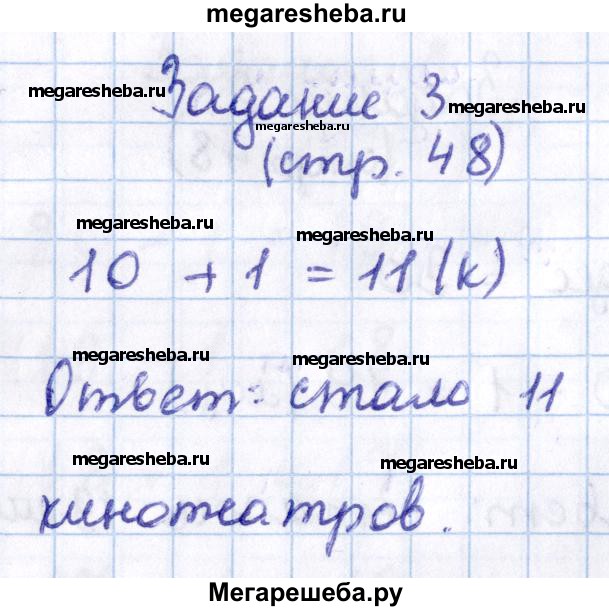 megaresheba.ru
megaresheba.ru megaresheba.ru
Задание 3
megaresheba.ru
(стр. 48)
megaresheba.ru megaresheba.ru
10 + 1 = 11 (к)
megaresheba.ru megaresheba.ru
Ответ: стало 11
megaresheba.ru megaresheba.ru
кинотеатров.
Мегарешеба.ру